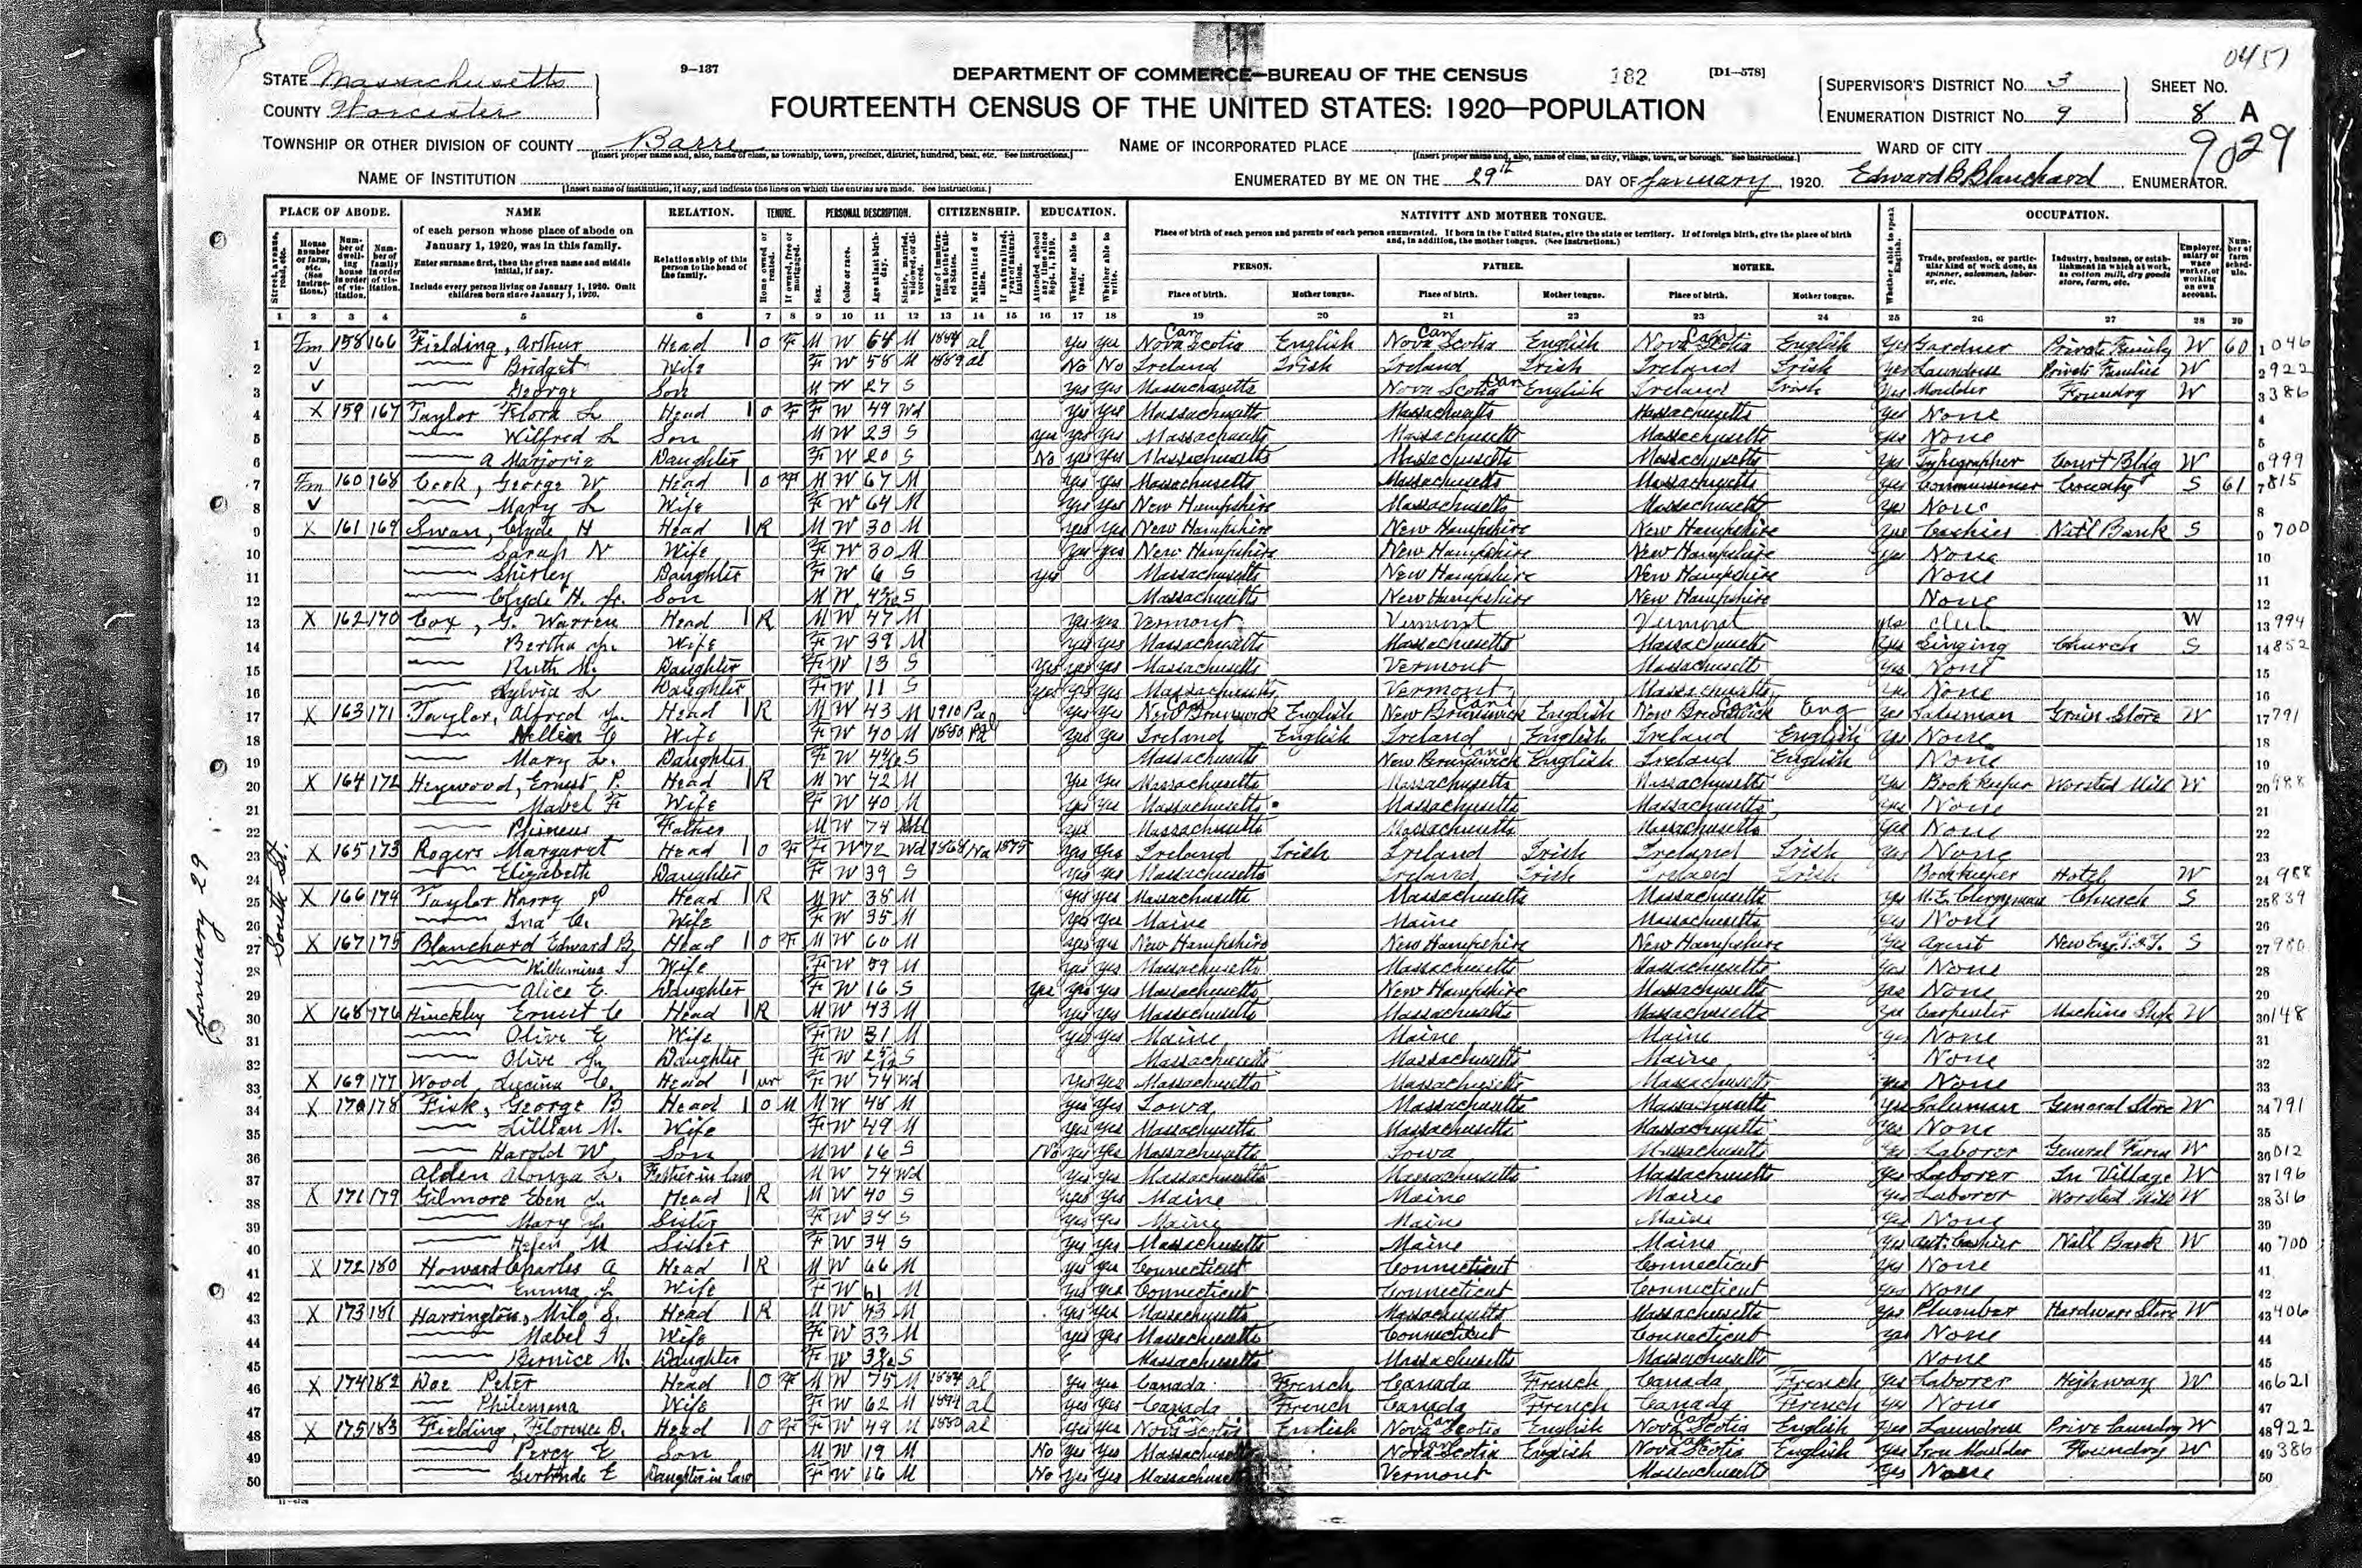 0451
STATE Massachusetts
9—137
DEPARTMENT OF COMMERCE—BUREAU OF THE CENSUS
182
[D1—578]
SUPERVISOR'S DISTRICT No. 3
SHEET No.
COUNTY Worcester
FOURTEENTH CENSUS OF THE UNITED STATES: 1920—POPULATION
ENUMERATION DISTRICT No. 9
8 A
TOWNSHIP OR OTHER DIVISION OF COUNTY Barre
[Insert proper name and, also, name of class, as township, town, precinct, district, hundred, beat, etc. See instructions.]
NAME OF INCORPORATED PLACE
[Insert proper name and, also, name of class, as city, village, town, or borough. See instructions.]
WARD OF CITY
9029
NAME OF INSTITUTION
[Insert name of institution, if any, and indicate the lines on which the entries are made. See instructions.]
ENUMERATED BY ME ON THE 29th DAY OF January, 1920. Edward B Blanchard ENUMERATOR.
PLACE OF ABODE. NAME RELATION. TENURE. PERSONAL DESCRIPTION. CITIZENSHIP. EDUCATION. NATIVITY AND MOTHER TONGUE. OCCUPATION.
of each person whose place of abode on January 1, 1920, was in this family.
Enter surname first, then the given name and middle initial, if any.
Include every person living on January 1, 1920. Omit children born since January 1, 1920.
Relationship of this person to the head of the family.
Place of birth of each person and parents of each person enumerated. If born in the United States, give the state or territory. If of foreign birth, give the place of birth and, in addition, the mother tongue. (See instructions.)
PERSON. FATHER. MOTHER.
Place of birth. Mother tongue. Place of birth. Mother tongue. Place of birth. Mother tongue.
1 2 3 4 5 6 7 8 9 10 11 12 13 14 15 16 17 18 19 20 21 22 23 24 25 26 27 28 29
January 29
South St.
1 Fm 158 166 Fielding, Arthur Head O F M W 64 M 1884 al Yes Yes Nova Scotia Can English Nova Scotia Can English Nova Scotia Can English Yes Gardner Private Family W 60 1 046
2 Bridget Wife F W 58 M 1889 al No No Ireland Irish Ireland Irish Ireland Irish Yes Laundress Private Families W 2 922
3 George Son M W 27 S Yes Yes Massachusetts Nova Scotia Can English Ireland Irish Yes Moulder Foundry W 3 386
4 X 159 167 Taylor Flora L Head O F F W 49 Wd Yes Yes Massachusetts Massachusetts Massachusetts Yes None 4
5 Wilfred L Son M W 23 S Yes Yes Yes Massachusetts Massachusetts Massachusetts Yes None 5
6 A Marjorie Daughter F W 20 S No Yes Yes Massachusetts Massachusetts Massachusetts Yes Court Bldg W 6 999
7 Fm 160 168 Cook, George W Head O M W 67 M Yes Yes Massachusetts Massachusetts Massachusetts Yes Commissioner County S 61 7 815
8 Mary L Wife F W 64 M Yes Yes New Hampshire Massachusetts Massachusetts Yes None 8
9 X 161 169 Swan, Clyde H Head R M W 30 M Yes Yes New Hampshire New Hampshire New Hampshire Yes Cashier Nat'l Bank S 9 700
10 Sarah N Wife F W 30 M Yes Yes New Hampshire New Hampshire New Hampshire Yes None 10
11 Shirley Daughter F W 6 S Yes Massachusetts New Hampshire New Hampshire None 11
12 Clyde H. Jr. Son M W S Massachusetts New Hampshire New Hampshire None 12
13 X 162 170 Cox, G. Warren Head R M W 47 M Yes Yes Vermont Vermont Vermont Yes W 13 994
14 Bertha M. Wife F W 39 M Yes Yes Massachusetts Massachusetts Massachusetts Yes Singing Church S 14 852
15 Ruth M. Daughter F W 13 S Yes Yes Yes Massachusetts Vermont Massachusetts Yes None 15
16 Sylvia L Daughter F W 11 S Yes Yes Yes Massachusetts Vermont Massachusetts Yes None 16
17 X 163 171 Taylor, Alfred Head R M W 43 M 1910 Pa Yes Yes New Brunswick Can English New Brunswick Can English New Brunswick Can Eng Yes Salesman Grain Store W 17 791
18 Hellen C Wife F W 40 M 1880 Pa Yes Yes Ireland English Ireland English Ireland English Yes None 18
19 Mary L. Daughter F W S Massachusetts New Brunswick Can English Ireland English None 19
20 X 164 172 Heywood, Ernest P. Head R M W 42 M Yes Yes Massachusetts Massachusetts Massachusetts Yes Bookkeeper Worsted Mill W 20 988
21 Mabel F Wife F W 40 M Yes Yes Massachusetts Massachusetts Massachusetts Yes None 21
22 Phineus Father M W 74 Wd Yes Massachusetts Massachusetts Massachusetts Yes None 22
23 X 165 173 Rogers Margaret Head O F F W 72 Wd 1868 Na 1875 Yes Yes Ireland Irish Ireland Irish Ireland Irish Yes None 23
24 Elizabeth Daughter F W 39 S Yes Yes Massachusetts Ireland Irish Ireland Irish Bookkeeper Hotel W 24 988
25 X 166 174 Taylor Harry P Head R M W 38 M Yes Yes Massachusetts Massachusetts Massachusetts Yes M.E. Clergyman Church S 25 839
26 Ina C. Wife F W 35 M Yes Yes Maine Maine Massachusetts Yes None 26
27 X 167 175 Blanchard Edward B. Head O F M W 60 M Yes Yes New Hampshire New Hampshire New Hampshire Yes Agent New Eng. T.&T. S 27 980
28 Willumina J Wife F W 59 M Yes Yes Massachusetts Massachusetts Massachusetts Yes None 28
29 Alice E. Daughter F W 16 S Yes Yes Yes Massachusetts New Hampshire Massachusetts Yes None 29
30 X 168 176 Hinckley Ernest C Head R M W 43 M Yes Yes Massachusetts Massachusetts Massachusetts Yes Carpenter Machine Shop W 30 148
31 Olive E Wife F W 31 M Yes Yes Maine Maine Maine Yes None 31
32 Olive Jn Daughter F W S Massachusetts Massachusetts Maine None 32
33 X 169 177 Wood, Lucina C. Head F W 74 Wd Yes Yes Massachusetts Massachusetts Massachusetts Yes None 33
34 X 170 178 Fisk, George B Head O M M W 48 M Yes Yes Iowa Massachusetts Massachusetts Yes Salesman General Store W 34 791
35 Lillian M. Wife F W 49 M Yes Yes Massachusetts Massachusetts Massachusetts Yes None 35
36 Harold W Son M W 16 S No Yes Yes Massachusetts Iowa Massachusetts Yes Laborer General Farm W 36 012
37 Alden Alonza L. Father in law M W 74 Wd Yes Yes Massachusetts Massachusetts Massachusetts Yes Laborer In Village W 37 196
38 X 171 179 Gilmore Eben J. Head R M W 40 S Yes Yes Maine Maine Maine Yes Laborer Worsted Mill W 38 316
39 Mary J. Sister F W 38 S Yes Yes Maine Maine Maine Yes None 39
40 Helen M Sister F W 34 S Yes Yes Massachusetts Maine Maine Yes Ast. Cashier Nat'l Bank W 40 700
41 X 172 180 Howard Charles A Head R M W 66 M Yes Yes Connecticut Connecticut Connecticut Yes None 41
42 Emma J. Wife F W 61 M Yes Yes Connecticut Connecticut Connecticut Yes None 42
43 X 173 181 Harrington, Milo S. Head R M W 43 M Yes Yes Massachusetts Massachusetts Massachusetts Yes Plumber Hardware Store W 43 406
44 Mabel I Wife F W 33 M Yes Yes Massachusetts Connecticut Connecticut Yes None 44
45 Bernice M. Daughter F W S Massachusetts Massachusetts Massachusetts None 45
46 X 174 182 Doe Peter Head O F M W 75 M 1884 al Yes Yes Canada French Canada French Canada French Yes Laborer Highway W 46 621
47 Philemena Wife F W 62 M 1894 al Yes Yes Canada French Canada French Canada French Yes None 47
48 X 175 183 Fielding, Florence D. Head O F F W 49 M 1880 al Yes Yes Nova Scotia Can English Nova Scotia Can English Nova Scotia Can English Yes Laundress Prive Laundry W 48 922
49 Percy E Son M W 19 M No Yes Yes Massachusetts Nova Scotia Can English Nova Scotia Can English Yes Iron Moulder Foundry W 49 386
50 Gertrude E Daughter in law F W 16 M No Yes Yes Massachusetts Vermont Massachusetts Yes None 50